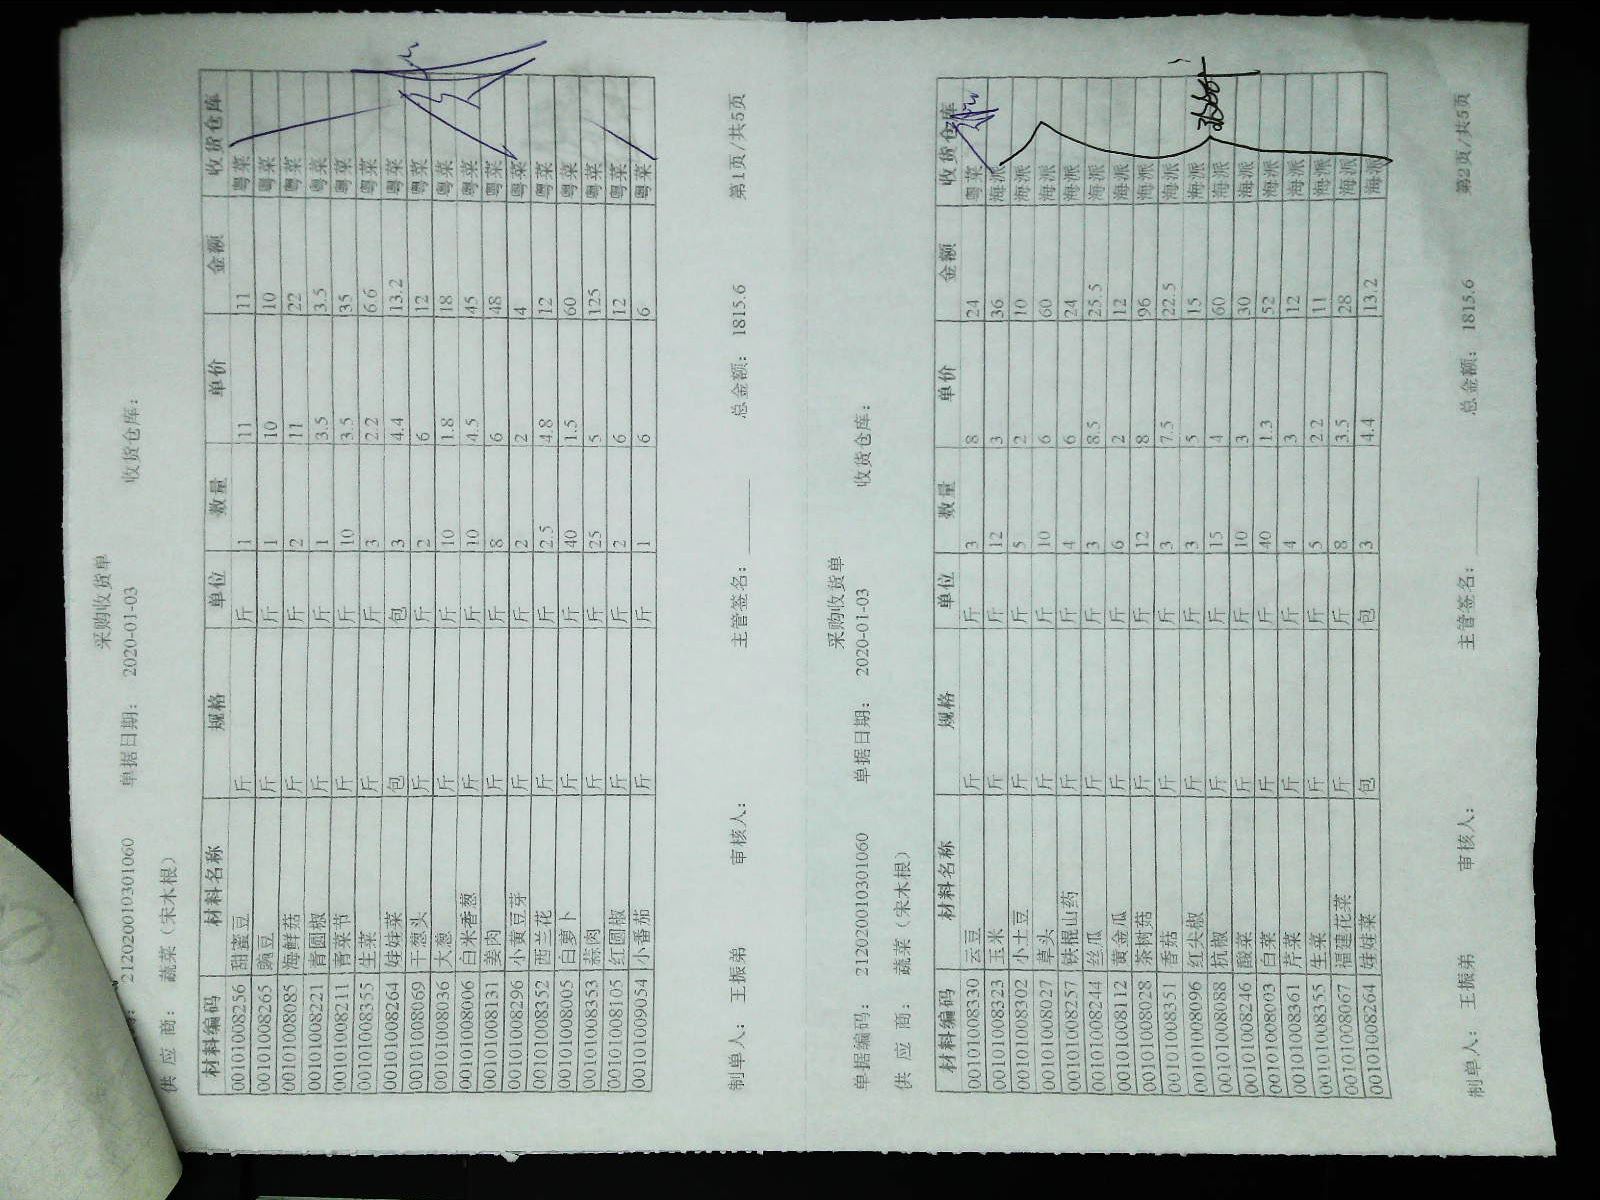 采购收货单
212020010301060 单据日期： 2020-01-03 收货仓库：
供 应 商： 蔬菜（宋木根）
材料编码 材料名称 规格 单位 数量 单价 金额 收货仓库
00101008256 甜蜜豆 斤 斤 1 11 11 粤菜
00101008265 豌豆 斤 斤 1 10 10 粤菜
00101008085 海鲜菇 斤 斤 2 11 22 粤菜
00101008221 青圆椒 斤 斤 1 3.5 3.5 粤菜
00101008211 青菜节 斤 斤 10 3.5 35 粤菜
00101008355 生菜 斤 斤 3 2.2 6.6 粤菜
00101008264 娃娃菜 包 包 3 4.4 13.2 粤菜
00101008069 干葱头 斤 斤 2 6 12 粤菜
00101008036 大葱 斤 斤 10 1.8 18 粤菜
00101008006 白米香葱 斤 斤 10 4.5 45 粤菜
00101008131 姜肉 斤 斤 8 6 48 粤菜
00101008296 小黄豆芽 斤 斤 2 2 4 粤菜
00101008352 西兰花 斤 斤 2.5 4.8 12 粤菜
00101008005 白萝卜 斤 斤 40 1.5 60 粤菜
00101008353 蒜肉 斤 斤 25 5 125 粤菜
00101008105 红圆椒 斤 斤 2 6 12 粤菜
00101009034 小番茄 斤 斤 1 6 6 粤菜
制单人： 王振弟 审核人： 主管签名： 总金额： 1815.6 第1页/共5页
采购收货单
单据编码： 212020010301060 单据日期： 2020-01-03 收货仓库：
供 应 商： 蔬菜（宋木根）
材料编码 材料名称 规格 单位 数量 单价 金额 收货仓库
00101008330 云豆 斤 斤 3 8 24 粤菜
00101008323 玉米 斤 斤 12 3 36 海派
00101008302 小土豆 斤 斤 5 2 10 海派
00101008027 草头 斤 斤 10 6 60 海派
00101008257 铁棍山药 斤 斤 4 6 24 海派
00101008244 丝瓜 斤 斤 3 8.5 25.5 海派
00101008112 黄金瓜 斤 斤 6 2 12 海派
00101008028 茶树菇 斤 斤 12 8 96 海派
00101008351 香菇 斤 斤 3 7.5 22.5 海派
00101008096 红尖椒 斤 斤 3 5 15 海派
00101008088 杭椒 斤 斤 15 4 60 海派
00101008246 酸菜 斤 斤 10 3 30 海派
00101008003 白菜 斤 斤 40 1.3 52 海派
00101008361 芹菜 斤 斤 4 3 12 海派
00101008355 生菜 斤 斤 5 2.2 11 海派
00101008067 福建花菜 斤 斤 8 3.5 28 海派
00101008264 娃娃菜 包 包 3 4.4 13.2 海派
制单人： 王振弟 审核人： 主管签名： 总金额： 1815.6 第2页/共5页